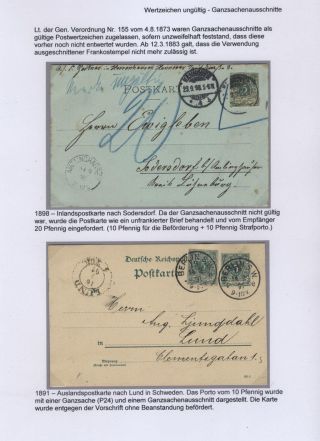 Wertzeichen ungültig - Ganzsachenausschnitte
Lt. der Gen. Verordnung Nr. 155 vom 4.8.1873 waren Ganzsachenausschnitte als
gültige Postwertzeichen zugelassen, sofern unzweifelhaft feststand, dass diese
vorher noch nicht entwertet wurden. Ab 12.3.1883 galt, dass die Verwendung
ausgeschnittener Frankostempel nicht mehr zulässig ist.
POSTKARTE
Herrn Ewigleben
20
Sodersdorf
1898 – Inlandspostkarte nach Sodersdorf. Da der Ganzsachenausschnitt nicht gültig
war, wurde die Postkarte wie ein unfrankierter Brief behandelt und vom Empfänger
20 Pfennig eingefordert. (10 Pfennig für die Beförderung + 10 Pfennig Strafporto.)
Deutsche Reichspost
Postkarte
LUND
BERLIN W
BERLIN W
Herrn
Aug. Ljungdahl
Lund
Clemensgatan 1.
1891 – Auslandspostkarte nach Lund in Schweden. Das Porto vom 10 Pfennig wurde
mit einer Ganzsache (P24) und einem Ganzsachenausschnitt dargestellt. Die Karte
wurde entgegen der Vorschrift ohne Beanstandung befördert.